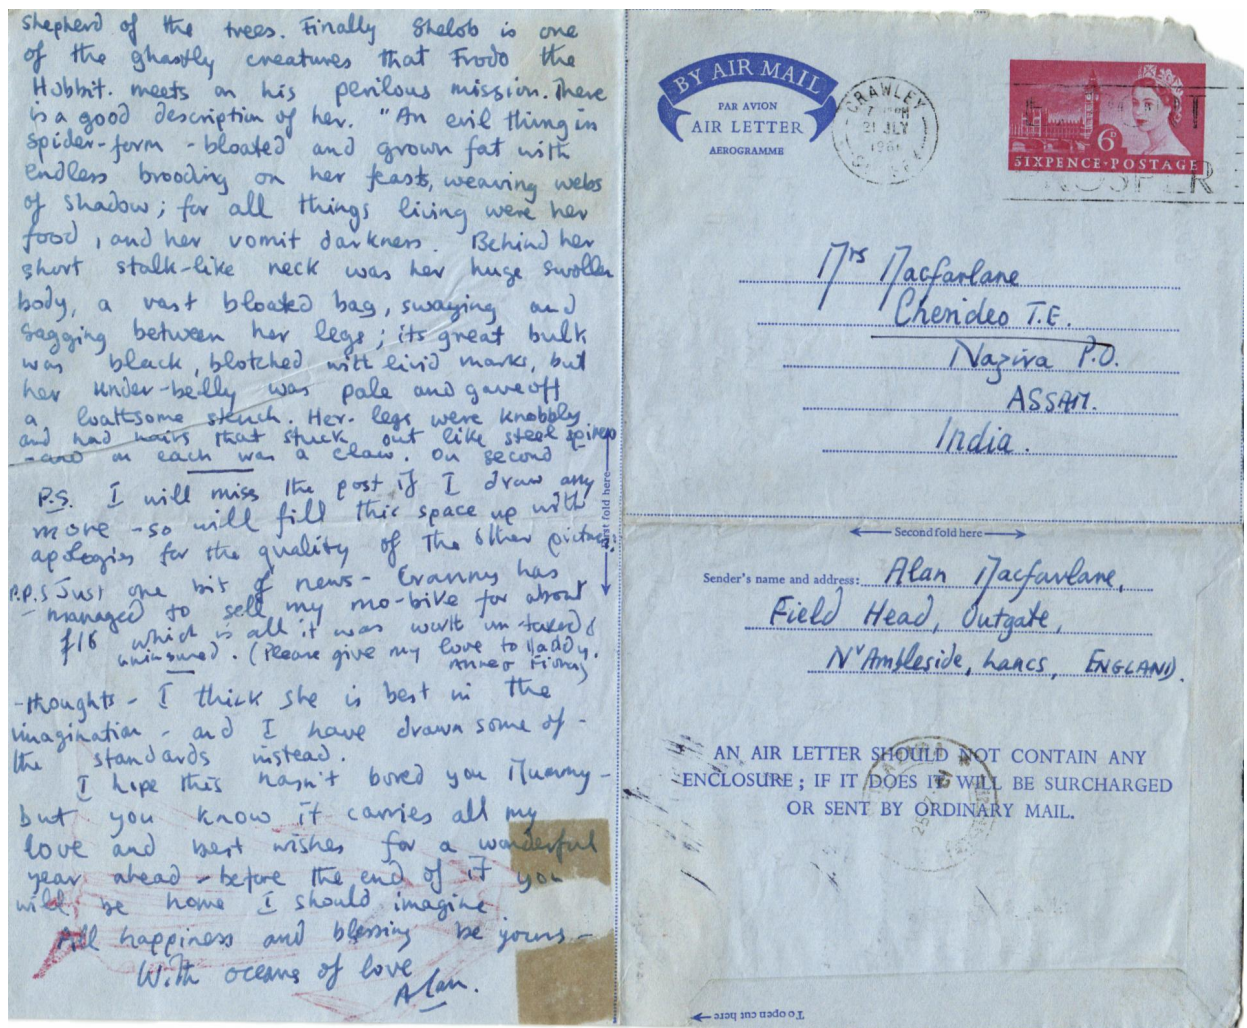 shepherd of the trees. Finally Shelob is one
of the ghastly creatures that Frodo the
Hobbit. meets on his perilous mission. There
is a good description of her. "An evil thing in
spider-form - bloated and grown fat with
endless brooding on her feasts, weaving webs
of shadow; for all things living were her
food, and her vomit darkness. Behind her
short stalk-like neck was her huge swollen
body, a vast bloated bag, swaying and
sagging between her legs; its great bulk
was black, blotched with livid marks, but
her under-belly was pale and gave off
a loathsome stench. Her legs were knobbly
and had hairs that stuck out like steel spines
- and on each was a claw. On second
P.S. I will miss the post if I draw any
more - so will fill this space up with
apologies for the quality of the other pictures.
P.P.S Just one bit of news - Granny has
managed to sell my mo-bike for about
£16 which is all it was worth un-taxed &
uninsured. (Please give my love to Daddy,
Anne & Fiona)
- thoughts - I think she is best in the
imagination - and I have drawn some of -
the standards instead.
I hope this hasn't bored you Mummy -
but you know it carries all my
love and best wishes for a wonderful
year ahead - before the end of it you
will be home I should imagine.
All happiness and blessing be yours -
With oceans of love
Alan.
First fold here
BY AIR MAIL
PAR AVION
AIR LETTER
AEROGRAMME
CRAWLEY
21 JLY
6D
SIXPENCE·POSTAGE
Mrs Macfarlane
Cherideo T.E.
Nazira P.O.
ASSAM.
India.
Second fold here
Sender's name and address: Alan Macfarlane,
Field Head, Outgate,
Nr Ambleside, Lancs, ENGLAND.
AN AIR LETTER SHOULD NOT CONTAIN ANY
ENCLOSURE; IF IT DOES IT WILL BE SURCHARGED
OR SENT BY ORDINARY MAIL.
To open cut here